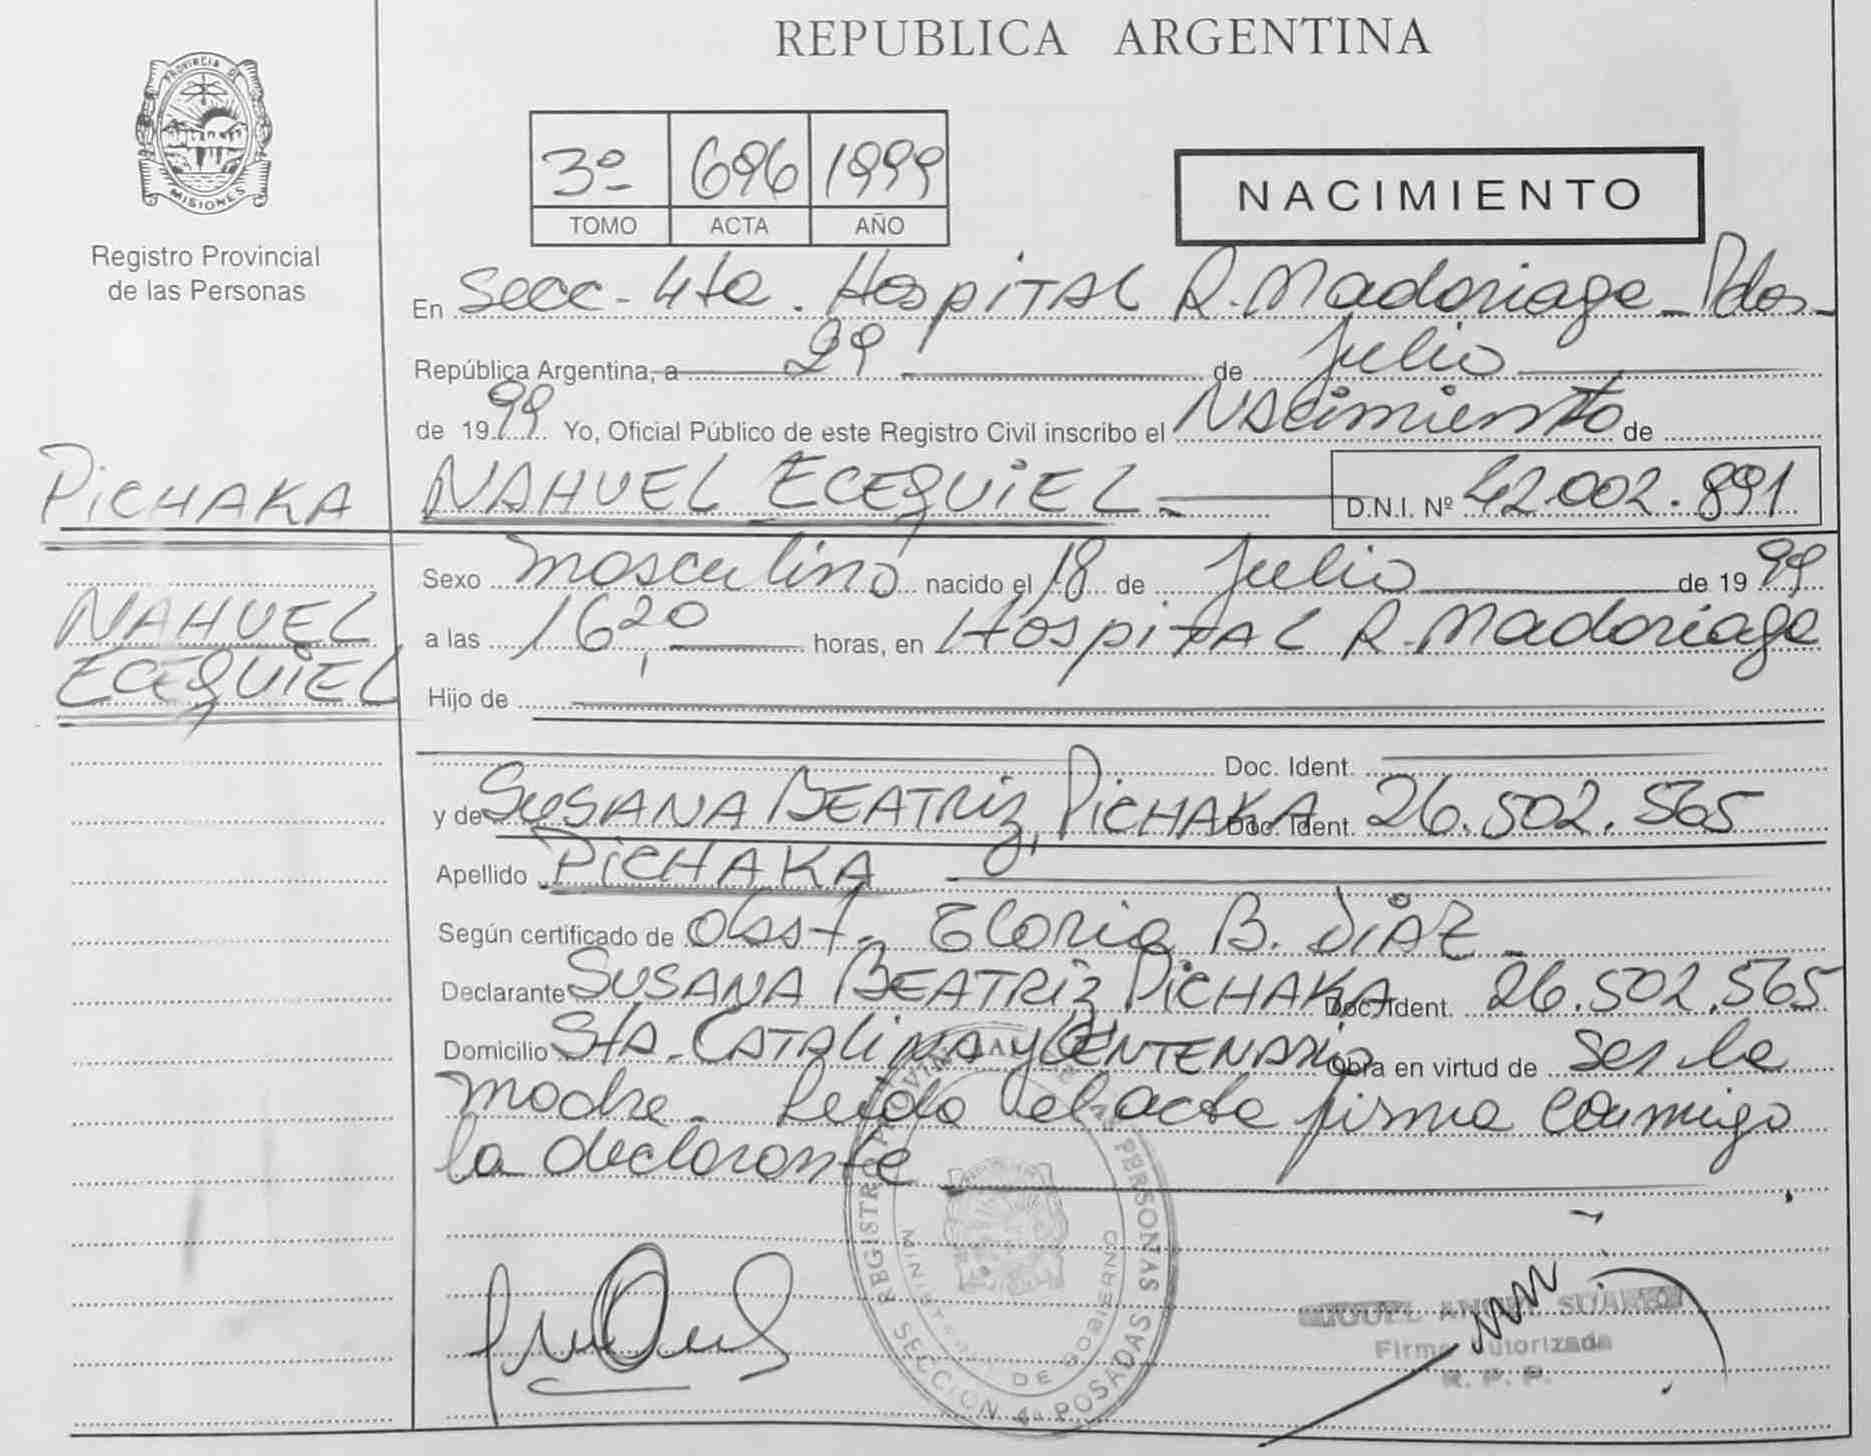 REPUBLICA ARGENTINA
PROVINCIA DE
MISIONES
Registro Provincial
de las Personas
3º 696 1999
TOMO ACTA AÑO
NACIMIENTO
En Secc- 4ta. Hospital R. Madariaga - Pdas-
República Argentina, a 29 de Julio
de 1999 Yo, Oficial Público de este Registro Civil inscribo el Nacimiento de
PICHAKA NAHUEL ECEQUIEL. D.N.I. Nº 42.002.891
Sexo masculino nacido el 18 de Julio de 1999
NAHUEL
a las 16,20 horas, en Hospital R. Madariaga
ECEQUIEL
Hijo de
Doc. Ident.
y de SUSANA BEATRIZ PICHAKA Doc. Ident. 26.502.565
Apellido PICHAKA
Según certificado de Obst. Gloria B. DIAZ
Declarante SUSANA BEATRIZ PICHAKA Doc. Ident. 26.502.565
Domicilio Sta. CATALINA y CENTENARIO Obra en virtud de ser la
madre. Leída el acta firma conmigo
la declarante
REGISTRO PROVINCIAL DE LAS PERSONAS
MINISTERIO DE GOBIERNO
SECCION 4a POSADAS
MIGUEL ANGEL SUAREZ
Firma Autorizada
R. P. P.